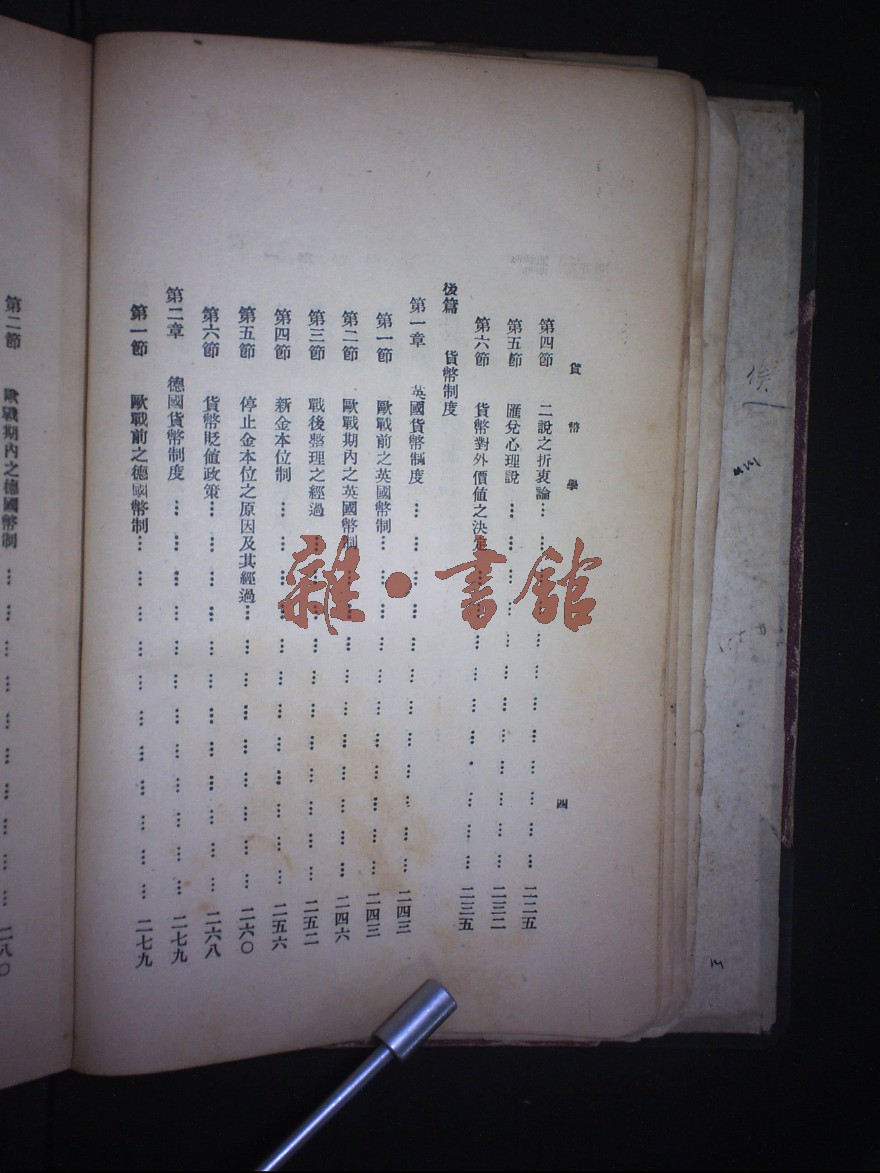 貨幣學
四
第四節 二說之折衷論 二二五
第五節 匯兌心理說 二三二
第六節 貨幣對外價値之決定 二三五
後篇 貨幣制度
第一章 英國貨幣制度 二四三
第一節 歐戰前之英國幣制 二四三
第二節 歐戰期內之英國幣制 二四六
第三節 戰後整理之經過 二五二
第四節 新金本位制 二五六
第五節 停止金本位之原因及其經過 二六〇
第六節 貨幣貶値政策 二六八
第二章 德國貨幣制度 二七九
第一節 歐戰前之德國幣制 二七九
第二節 歐戰期內之德國幣制 二八〇
雜·書館